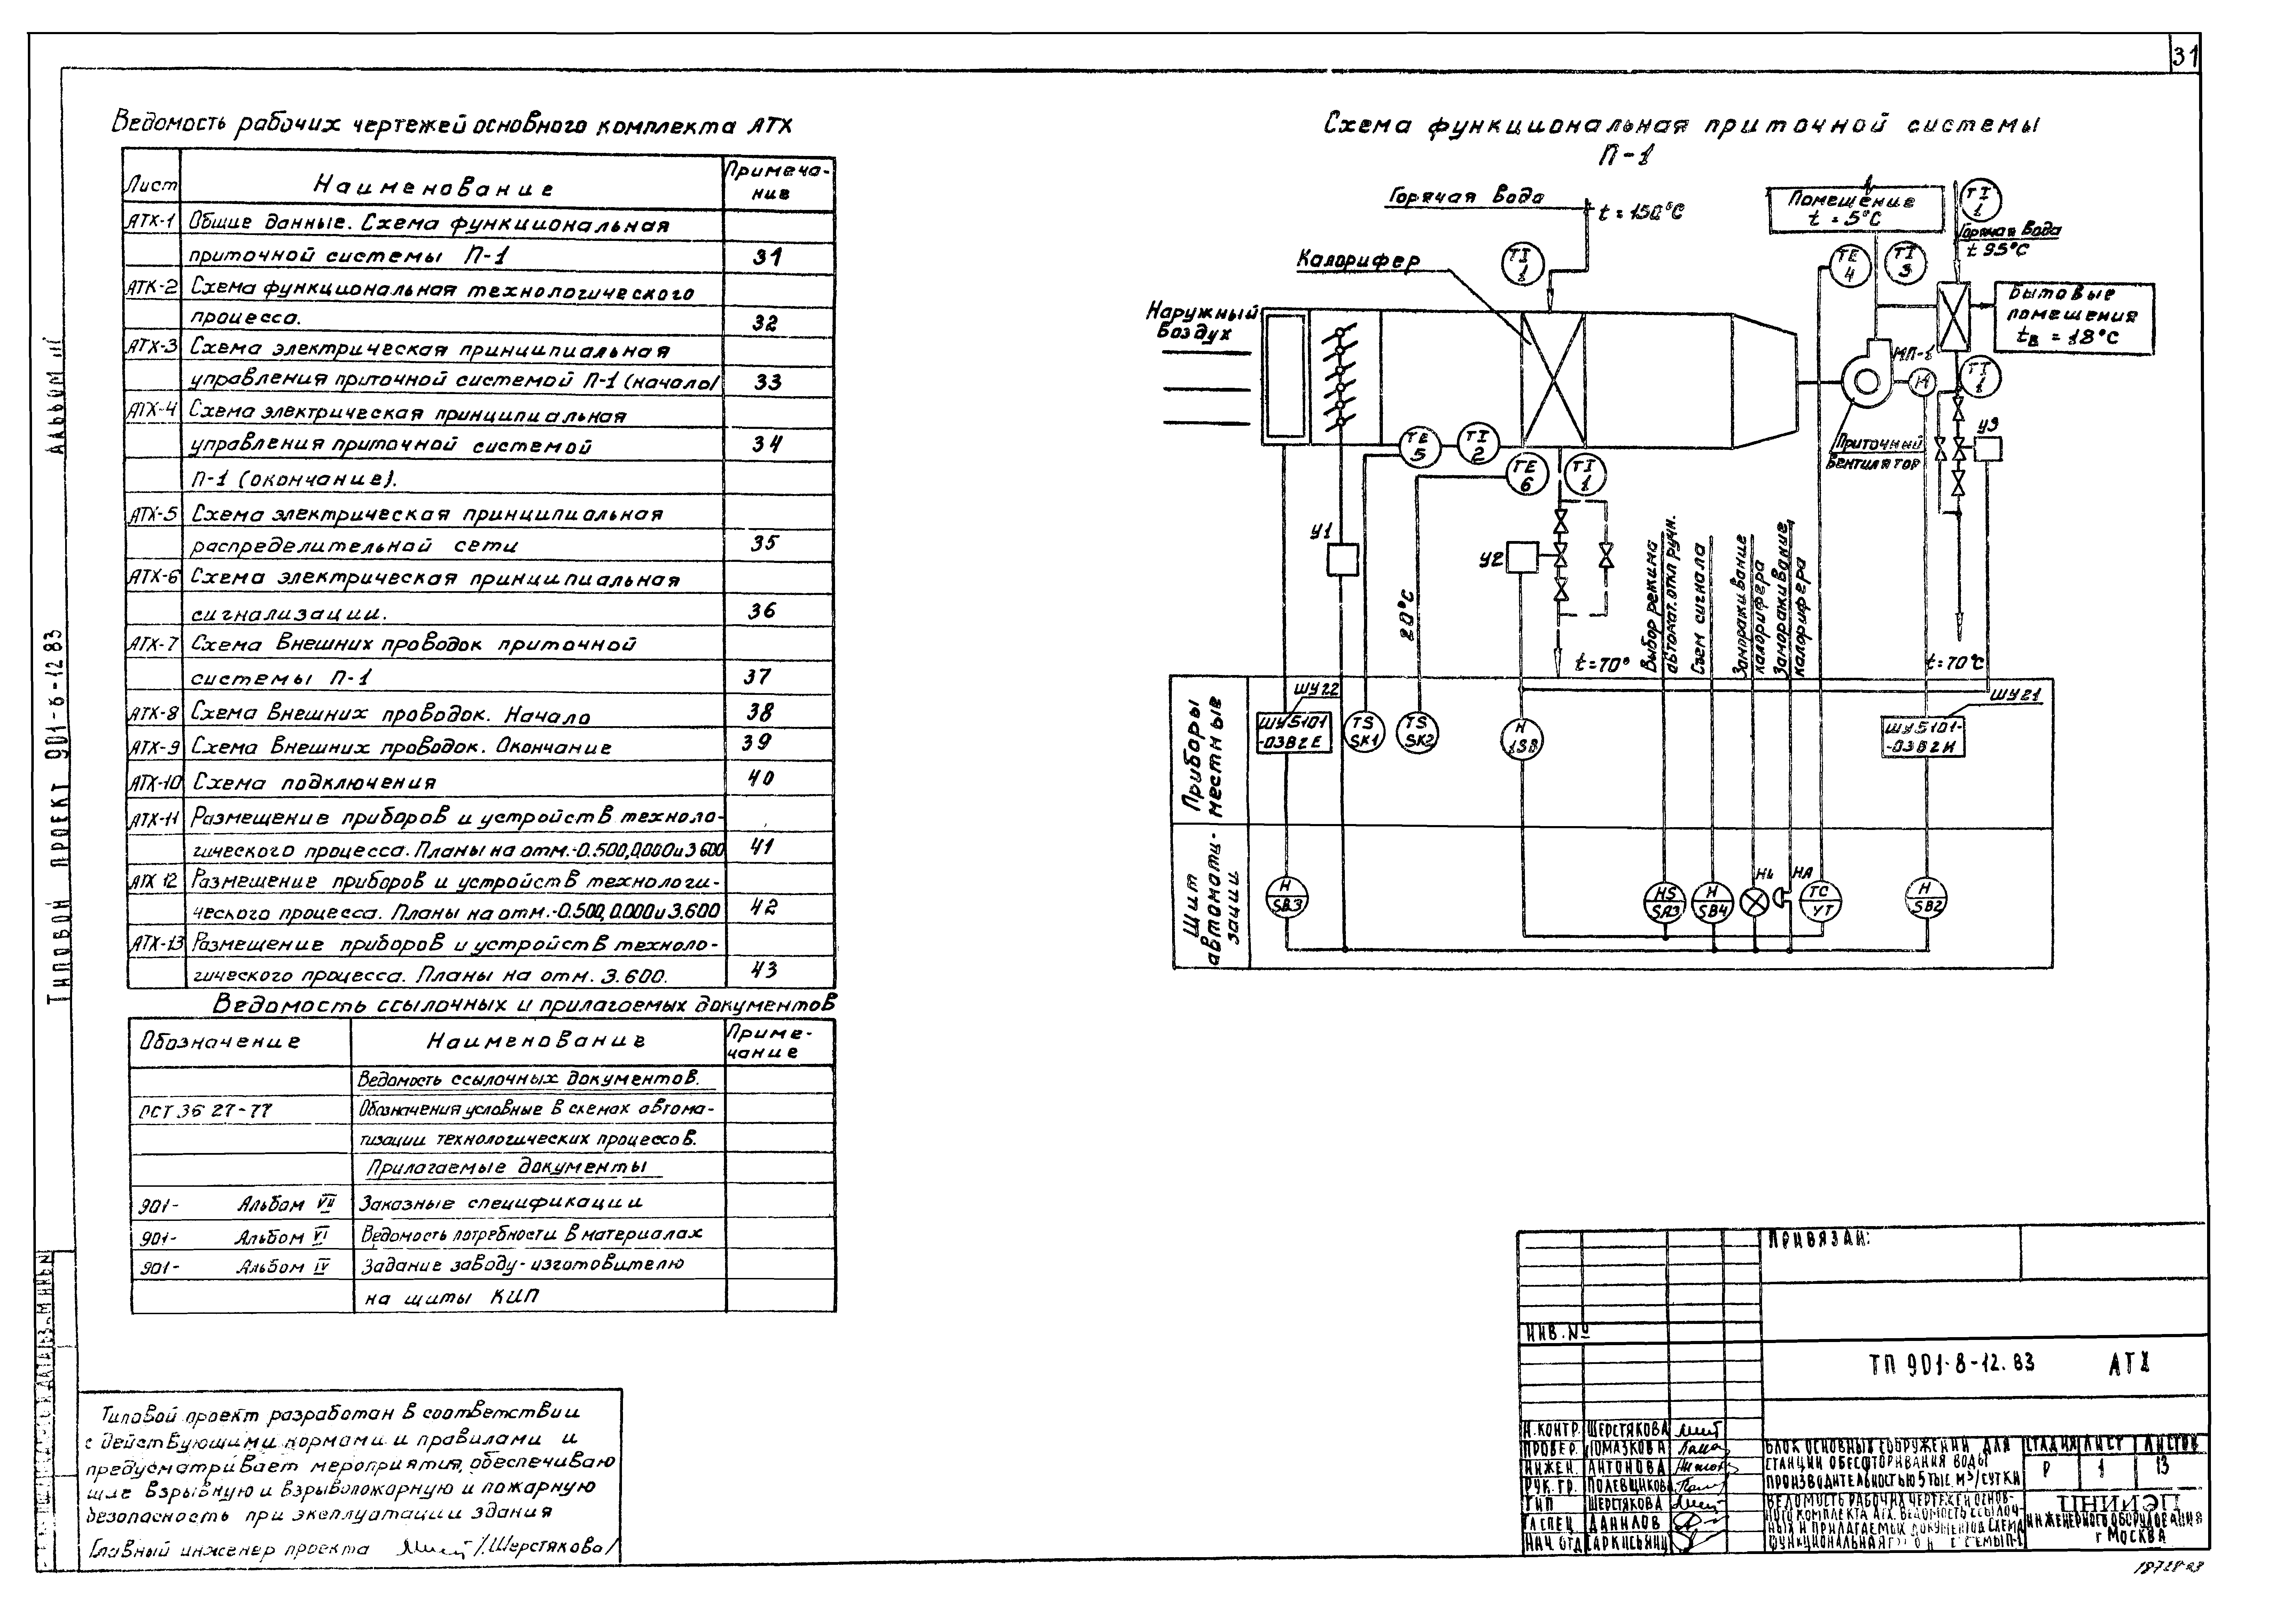 31
Ведомость рабочих чертежей основного комплекта АТХ
Лист
Наименование
Примеча-
ние
АТХ-1 Общие данные. Схема функциональная
приточной системы П-1 31
АТК-2 Схема функциональная технологического
процесса. 32
АТХ-3 Схема электрическая принципиальная
управления приточной системой П-1 (начало) 33
АТХ-4 Схема электрическая принципиальная
управления приточной системой 34
П-1 (окончание).
АТХ-5 Схема электрическая принципиальная
распределительной сети 35
АТХ-6 Схема электрическая принципиальная
сигнализации. 36
АТХ-7 Схема внешних проводок приточной
системы П-1 37
АТХ-8 Схема внешних проводок. Начало 38
АТХ-9 Схема внешних проводок. Окончание 39
АТХ-10 Схема подключения 40
АТХ-11 Размещение приборов и устройств техноло-
гического процесса. Планы на отм.-0.500, 0.000 и 3 600 41
АТХ 12 Размещение приборов и устройств технологи-
ческого процесса. Планы на отм.-0.500, 0.000 и 3.600 42
АТХ-13 Размещение приборов и устройств техноло-
гического процесса. Планы на отм. 3.600. 43
Ведомость ссылочных и прилагаемых документов
Обозначение
Наименование
Приме-
чание
Ведомость ссылочных документов.
ОСТ 36 27-77 Обозначения условные в схемах автома-
тизации технологических процессов.
Прилагаемые документы
901- Альбом VII Заказные спецификации
901- Альбом VI Ведомость потребности в материалах
901- Альбом IV Задание заводу-изготовителю
на щиты КИП
Типовой проект разработан в соответствии
с действующими нормами и правилами и
предусматривает мероприятия, обеспечиваю
щие взрывную и взрывопожарную и пожарную
безопасность при эксплуатации здания
Главный инженер проекта /Шерстякова/
Альбом III
Типовой проект 901-6-12 83
Схема функциональная приточной системы
П-1
Горячая вода
t = 150°С
Калорифер
TI
1
Наружный
воздух
Помещение
t = 5°С
TE
4
TI
3
TI
1
Горячая вода
t 95°С
Бытовые
помещения
tв = 18°С
МП-1
М
TI
1
Приточный
вентилятор
У3
TE
5
TI
2
TE
6
TI
1
У1
У2
20°С
t = 70°
t = 70°С
Выбор режима
автомат. откл ручн.
Съем сигнала
Замораживание
калорифера
Замораживание
калорифера
Приборы
местные
ШУ22
ШУ5101
-03В2Е
TS
SK1
TS
SK2
H
1SB
ШУ21
ШУ5101-
-03В2И
Щит
автомати-
зации
H
SB3
HS
SA3
H
SB4
HL
HA
TC
YT
H
SB2
Привязан:
Инв. №
ТП 901-8-12. 83 АТХ
Н.контр. Шерстякова
Провер. Ломазкова
Инжен. Антонова
Рук. гр. Полевщикова
ГИП Шерстякова
Гл спец Данилов
Нач. отд Саркисьянц
Блок основных сооружений для
станции обесфторивания воды
производительностью 5 тыс. м³/сутки
Стадия Лист Листов
Р 1 13
Ведомость рабочих чертежей основ-
ного комплекта АТХ. Ведомость ссылоч-
ных и прилагаемых документов. Схема
функциональная
ЦНИИЭП
инженерного оборудования
г Москва
18728-03